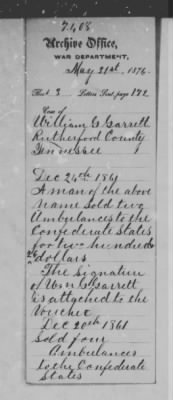 7.408
Archive Office,
WAR DEPARTMENT,
May 31st, 1876
Book 3 Letters Sent, page 172
Case of
William C. Garrett
Rutherford County
Tennessee
Dec 24th 1861
A man of the above
name Sold two
Ambulances to the
Confederate States
for two hundred
dollars
The Signature
of Wm C. Garrett
is attached to the
Voucher
Dec 20th 1861
Sold four
Ambulances
to the Confederate
States